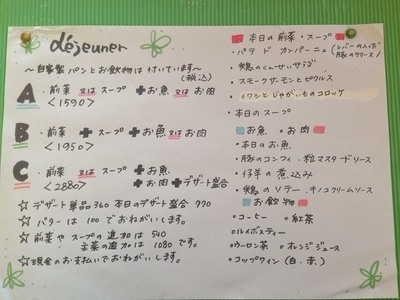 déjeuner
〜自家製パンとお飲物は付いています〜
(税込)
A ・前菜 又は スープ ✚お魚 又は お肉
<1590>
B ・前菜 ✚ スープ ✚お魚 又は お肉
<1950>
C ・前菜 又は スープ ✚お魚
<2880> ✚お肉 ✚デザート盛合
☆ デザート単品 360 本日のデザート盛合 770
☆ バターは 100 でおねがいします。
☆ 前菜や スープの追加は 540
主菜の追加は 1080 です。
☆ 現金のお支払いでおねがいします。
本日の前菜・スープ
・パテ ド カンパーニュ (レバーの入った
豚のテリーヌ)
・鶏のくんせいサラダ
・スモークサーモンとピクルス
・イワシとじゃがいものコロッケ
・本日のスープ
お魚 お肉
・本日のお魚
・豚のコンフィ、粒マスタードソース
・仔羊の煮込み
・鶏のソテー、キノコクリームソース
お飲物
・コーヒー ・紅茶
・ルイボスティー
・ウーロン茶 ・オレンジジュース
・コップワイン (白、赤)